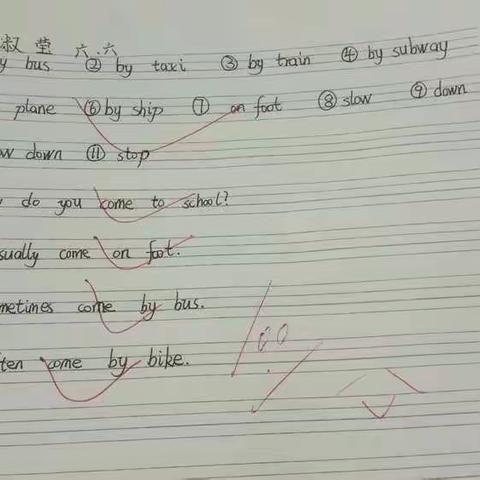 叔莹 六.六
y bus ② by taxi ③ by train ④ by subway
plane ⑥ by ship ⑦ on foot ⑧ slow ⑨ down
w down ⑪ stop
do you come to school?
sually come on foot.
metimes come by bus.
ten come by bike.
100